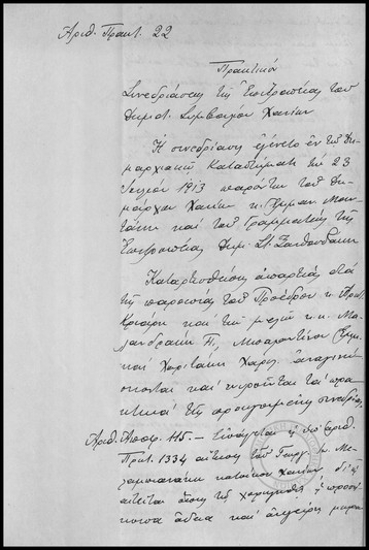 Αριθ. Πρακτ. 22
Πρακτικόν
Συνεδριάσεως της Επιτροπείας του
Δημοτ. Συμβουλίου Χανίων
Η συνεδρίασις εγένετο εν τω Δη-
μαρχιακώ Καταστήματι τη 23
1913 παρόντων του Δη-
μάρχου Χανίων κ.
και του Γραμματέως της
Επιτροπείας Δημ. Στ. Ξανθουδάκη
Καταρτισθείσης απαρτίας διά
της παρουσίας του Προέδρου κ. Αριστ.
Κριάρη και των μελών κ.κ.
και Χαρ. αναγινώ
σκονται και κυρούνται τα πρα
κτικά της προηγουμένης συνεδρίας
Αριθ. Αποφ. 115. — Εισάγεται η υπ' αριθ.
Πρωτ. 1334 αίτησις του Γεωργ. Μ.
κατοίκου Χανίων, δι' ης
αιτείται όπως τω χορηγηθή η
άδεια και